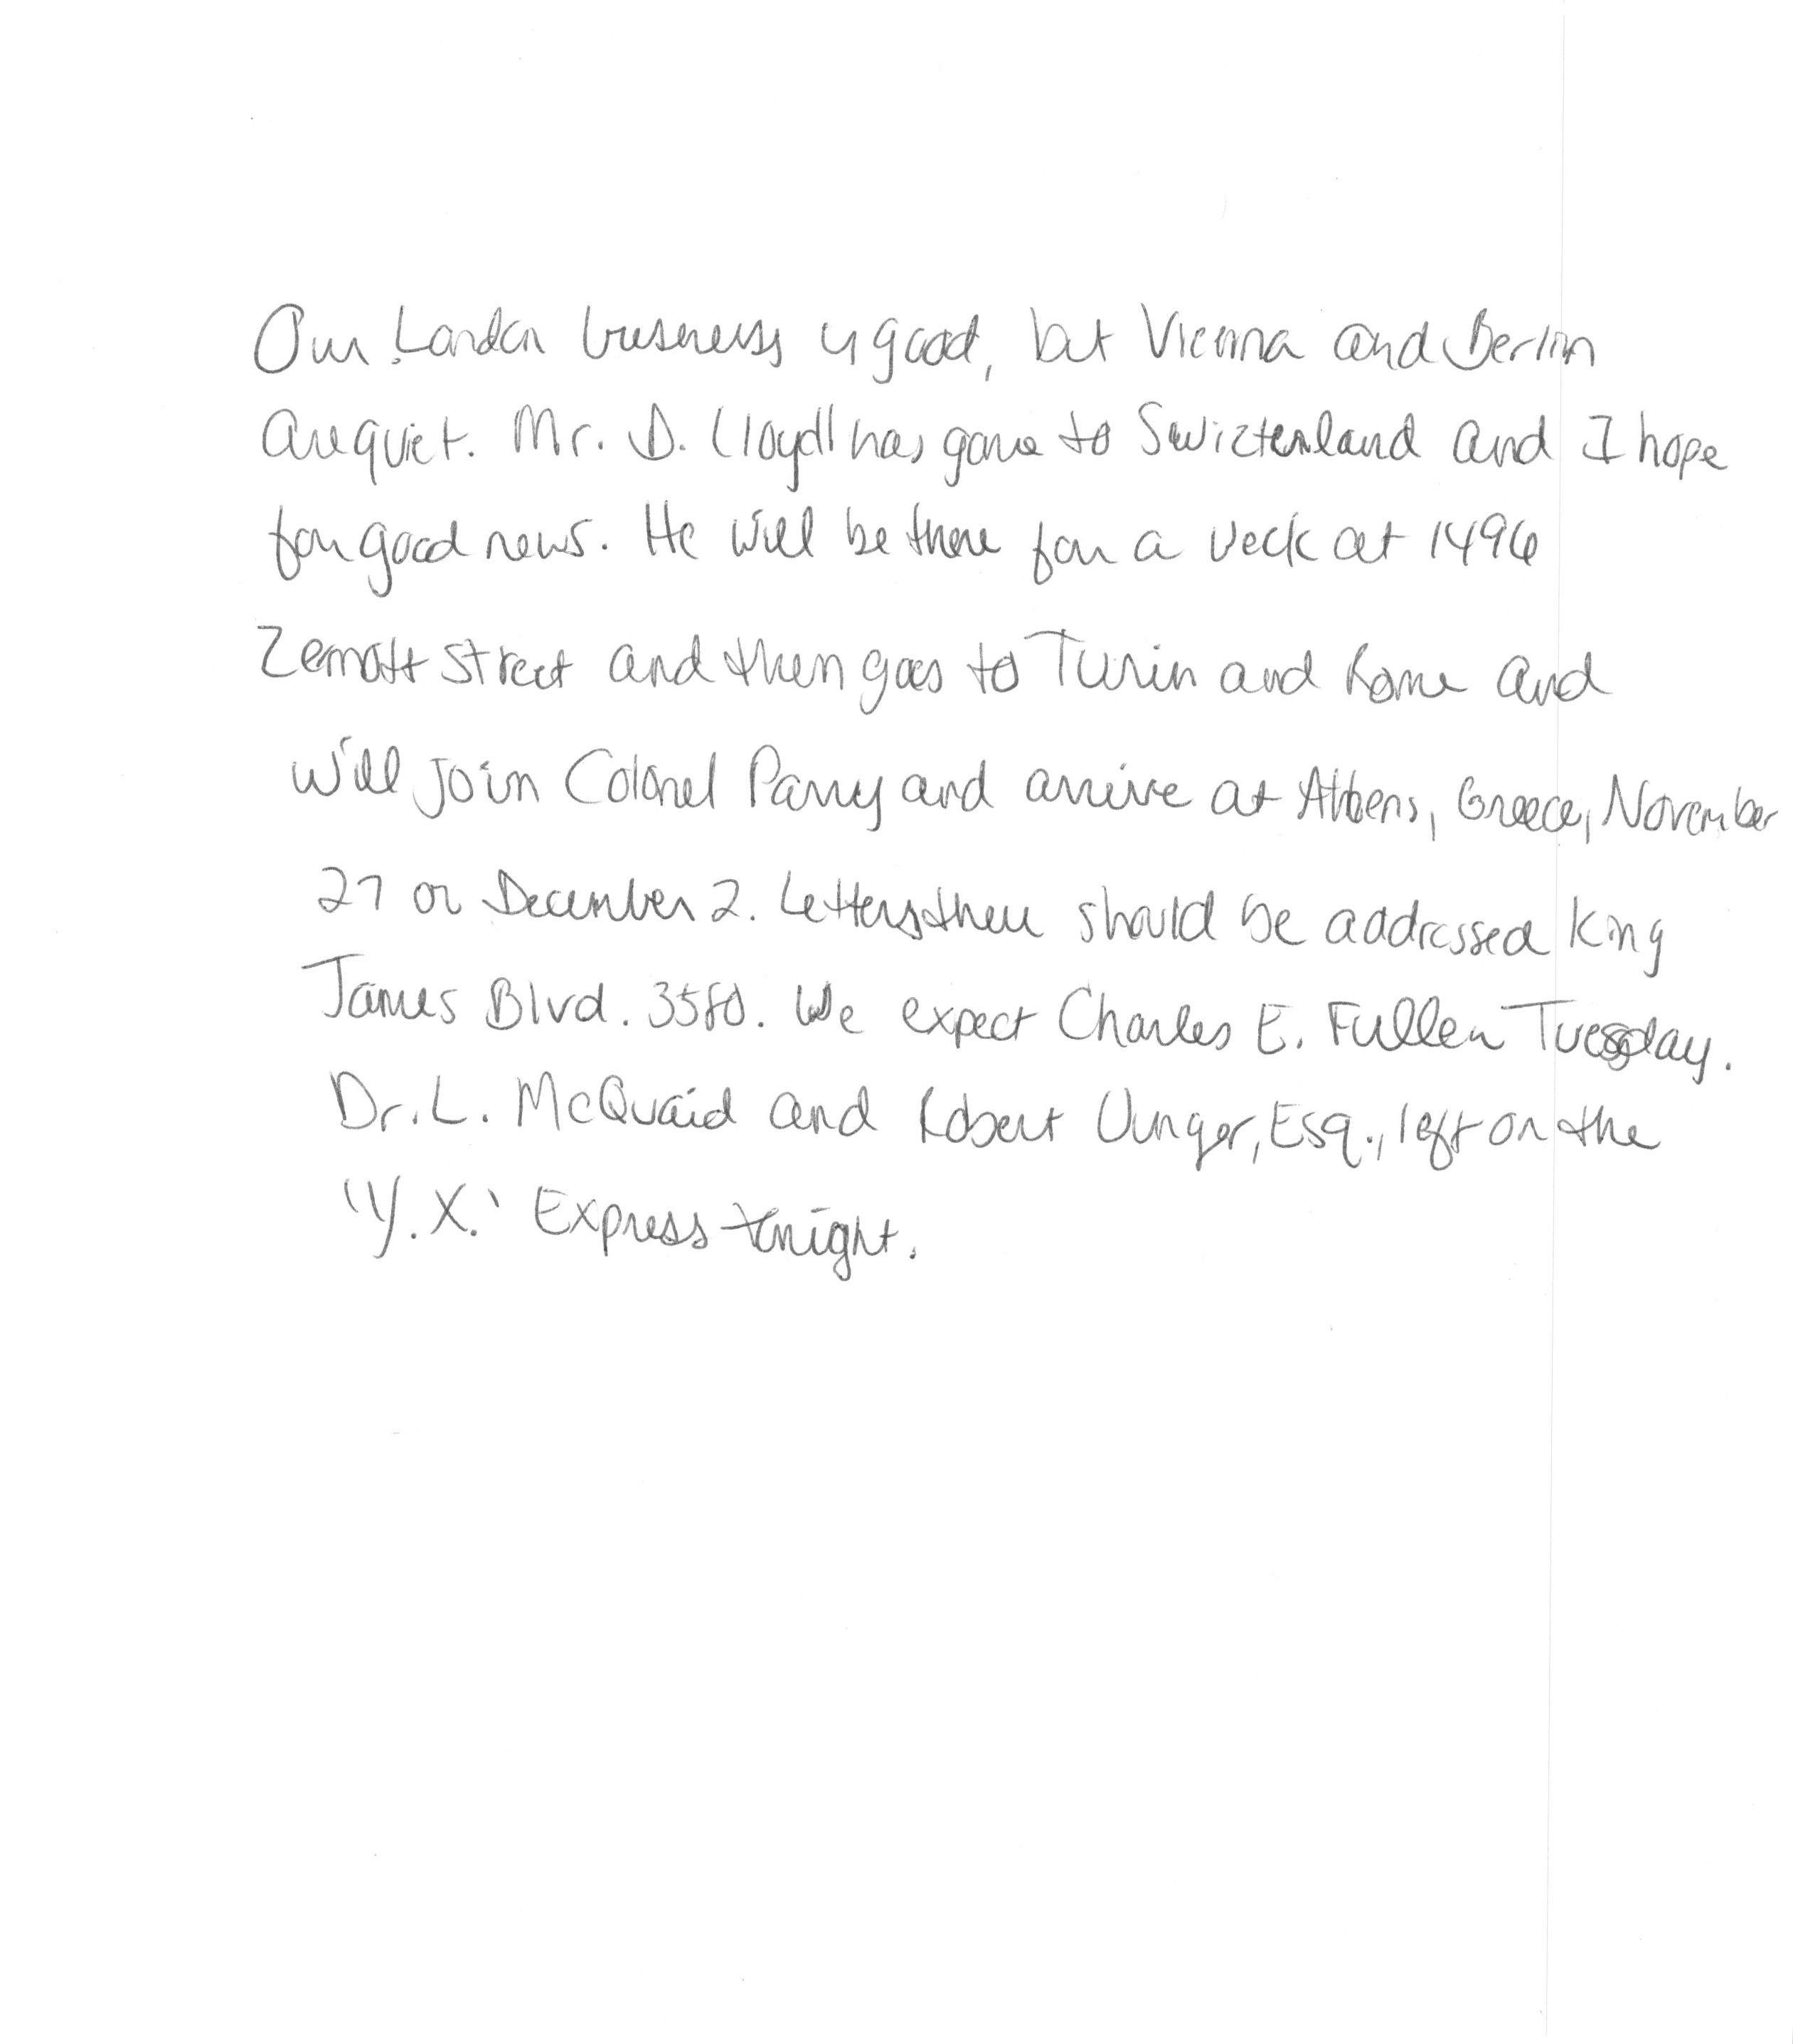 Our London business is good, but Vienna and Berlin
are quiet. Mr. D. Lloyd has gone to Swizterland and I hope
for good news. He will be there for a week at 1496
Zemott Street and then goes to Turin and Rome and
will join Colonel Parry and arrive at Athens, Greece, November
27 or December 2. Letters there should be addressed King
James Blvd. 3580. We expect Charles E. Fuller Tuesday.
Dr. L. McQuaid and Robert Unger, Esq., left on the
'Y.X.' Express tonight.